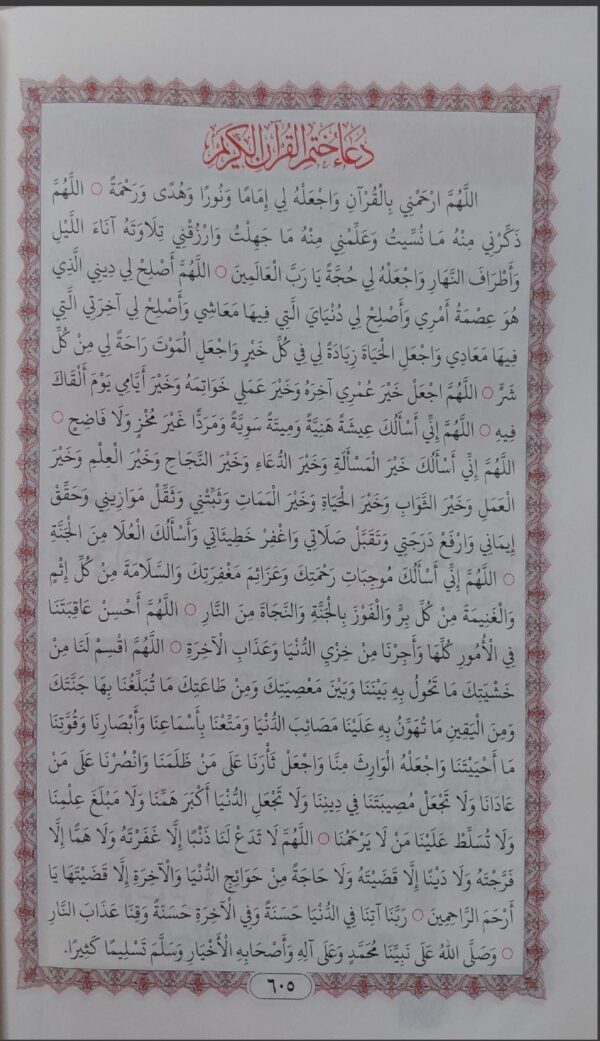 دُعَاءُ خَتْمِ الْقُرْآنِ الْكَرِيمِ
اللَّهُمَّ ارْحَمْنِي بِالْقُرْآنِ وَاجْعَلْهُ لِي إِمَامًا وَنُورًا وَهُدًى وَرَحْمَةً ○ اللَّهُمَّ
ذَكِّرْنِي مِنْهُ مَا نُسِّيتُ وَعَلِّمْنِي مِنْهُ مَا جَهِلْتُ وَارْزُقْنِي تِلَاوَتَهُ آنَاءَ اللَّيْلِ
وَأَطْرَافَ النَّهَارِ وَاجْعَلْهُ لِي حُجَّةً يَا رَبَّ الْعَالَمِينَ ○ اللَّهُمَّ أَصْلِحْ لِي دِينِي الَّذِي
هُوَ عِصْمَةُ أَمْرِي وَأَصْلِحْ لِي دُنْيَايَ الَّتِي فِيهَا مَعَاشِي وَأَصْلِحْ لِي آخِرَتِي الَّتِي
فِيهَا مَعَادِي وَاجْعَلِ الْحَيَاةَ زِيَادَةً لِي فِي كُلِّ خَيْرٍ وَاجْعَلِ الْمَوْتَ رَاحَةً لِي مِنْ كُلِّ
شَرٍّ ○ اللَّهُمَّ اجْعَلْ خَيْرَ عُمْرِي آخِرَهُ وَخَيْرَ عَمَلِي خَوَاتِمَهُ وَخَيْرَ أَيَّامِي يَوْمَ أَلْقَاكَ
فِيهِ ○ اللَّهُمَّ إِنِّي أَسْأَلُكَ عِيشَةً هَنِيَّةً وَمِيتَةً سَوِيَّةً وَمَرَدًّا غَيْرَ مُخْزٍ وَلَا فَاضِحٍ ○
اللَّهُمَّ إِنِّي أَسْأَلُكَ خَيْرَ الْمَسْأَلَةِ وَخَيْرَ الدُّعَاءِ وَخَيْرَ النَّجَاحِ وَخَيْرَ الْعِلْمِ وَخَيْرَ
الْعَمَلِ وَخَيْرَ الثَّوَابِ وَخَيْرَ الْحَيَاةِ وَخَيْرَ الْمَمَاتِ وَثَبِّتْنِي وَثَقِّلْ مَوَازِينِي وَحَقِّقْ
إِيمَانِي وَارْفَعْ دَرَجَتِي وَتَقَبَّلْ صَلَاتِي وَاغْفِرْ خَطِيئَاتِي وَأَسْأَلُكَ الْعُلَا مِنَ الْجَنَّةِ
○ اللَّهُمَّ إِنِّي أَسْأَلُكَ مُوجِبَاتِ رَحْمَتِكَ وَعَزَائِمَ مَغْفِرَتِكَ وَالسَّلَامَةَ مِنْ كُلِّ إِثْمٍ
وَالْغَنِيمَةَ مِنْ كُلِّ بِرٍّ وَالْفَوْزَ بِالْجَنَّةِ وَالنَّجَاةَ مِنَ النَّارِ ○ اللَّهُمَّ أَحْسِنْ عَاقِبَتَنَا
فِي الْأُمُورِ كُلِّهَا وَأَجِرْنَا مِنْ خِزْيِ الدُّنْيَا وَعَذَابِ الْآخِرَةِ ○ اللَّهُمَّ اقْسِمْ لَنَا مِنْ
خَشْيَتِكَ مَا تَحُولُ بِهِ بَيْنَنَا وَبَيْنَ مَعْصِيَتِكَ وَمِنْ طَاعَتِكَ مَا تُبَلِّغُنَا بِهَا جَنَّتَكَ
وَمِنَ الْيَقِينِ مَا تُهَوِّنُ بِهِ عَلَيْنَا مَصَائِبَ الدُّنْيَا وَمَتِّعْنَا بِأَسْمَاعِنَا وَأَبْصَارِنَا وَقُوَّتِنَا
مَا أَحْيَيْتَنَا وَاجْعَلْهُ الْوَارِثَ مِنَّا وَاجْعَلْ ثَأْرَنَا عَلَى مَنْ ظَلَمَنَا وَانْصُرْنَا عَلَى مَنْ
عَادَانَا وَلَا تَجْعَلْ مُصِيبَتَنَا فِي دِينِنَا وَلَا تَجْعَلِ الدُّنْيَا أَكْبَرَ هَمِّنَا وَلَا مَبْلَغَ عِلْمِنَا
وَلَا تُسَلِّطْ عَلَيْنَا مَنْ لَا يَرْحَمُنَا ○ اللَّهُمَّ لَا تَدَعْ لَنَا ذَنْبًا إِلَّا غَفَرْتَهُ وَلَا هَمًّا إِلَّا
فَرَّجْتَهُ وَلَا دَيْنًا إِلَّا قَضَيْتَهُ وَلَا حَاجَةً مِنْ حَوَائِجِ الدُّنْيَا وَالْآخِرَةِ إِلَّا قَضَيْتَهَا يَا
أَرْحَمَ الرَّاحِمِينَ ○ رَبَّنَا آتِنَا فِي الدُّنْيَا حَسَنَةً وَفِي الْآخِرَةِ حَسَنَةً وَقِنَا عَذَابَ النَّارِ
○ وَصَلَّى اللهُ عَلَى نَبِيِّنَا مُحَمَّدٍ وَعَلَى آلِهِ وَأَصْحَابِهِ الْأَخْيَارِ وَسَلَّمَ تَسْلِيمًا كَثِيرًا.
٦٠٥